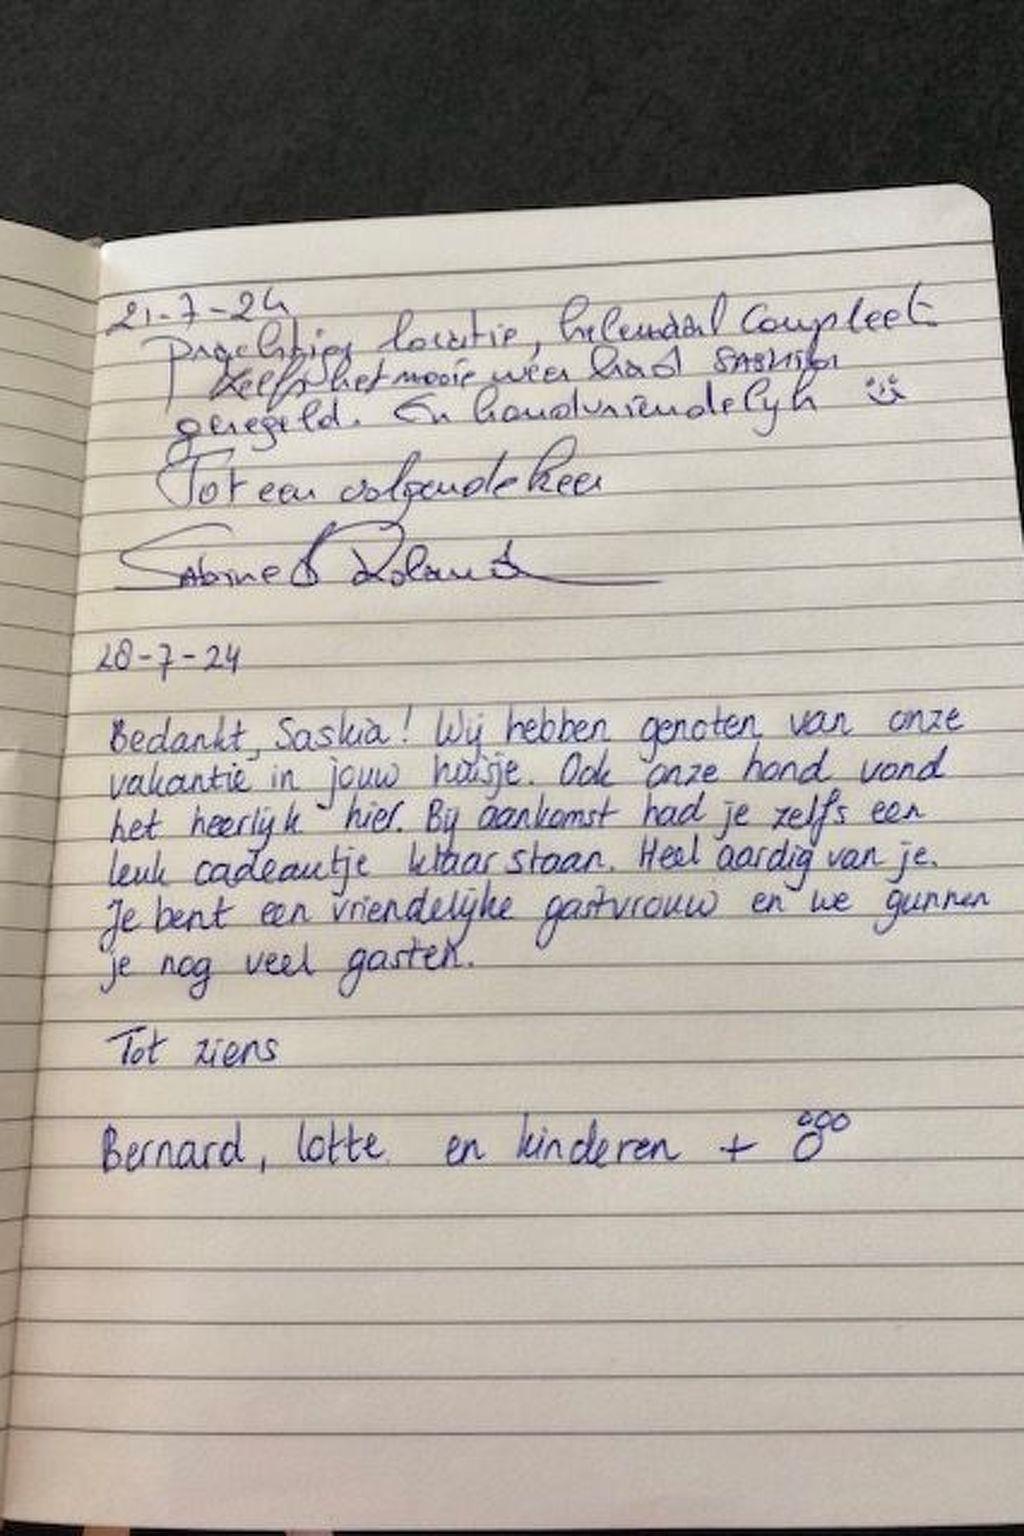 21-7-24
Prachtige locatie, helemaal compleet
Zelfs het mooie weer had Saskia
geregeld. En hondvriendelijk
Tot een volgende keer
Sabine & Roland
28-7-24
Bedankt, Saskia! Wij hebben genoten van onze
vakantie in jouw huisje. Ook onze hond vond
het heerlijk hier. Bij aankomst had je zelfs een
leuk cadeautje klaar staan. Heel aardig van je.
Je bent een vriendelijke gastvrouw en we gunnen
je nog veel gasten.
Tot ziens
Bernard, Lotte en kinderen +